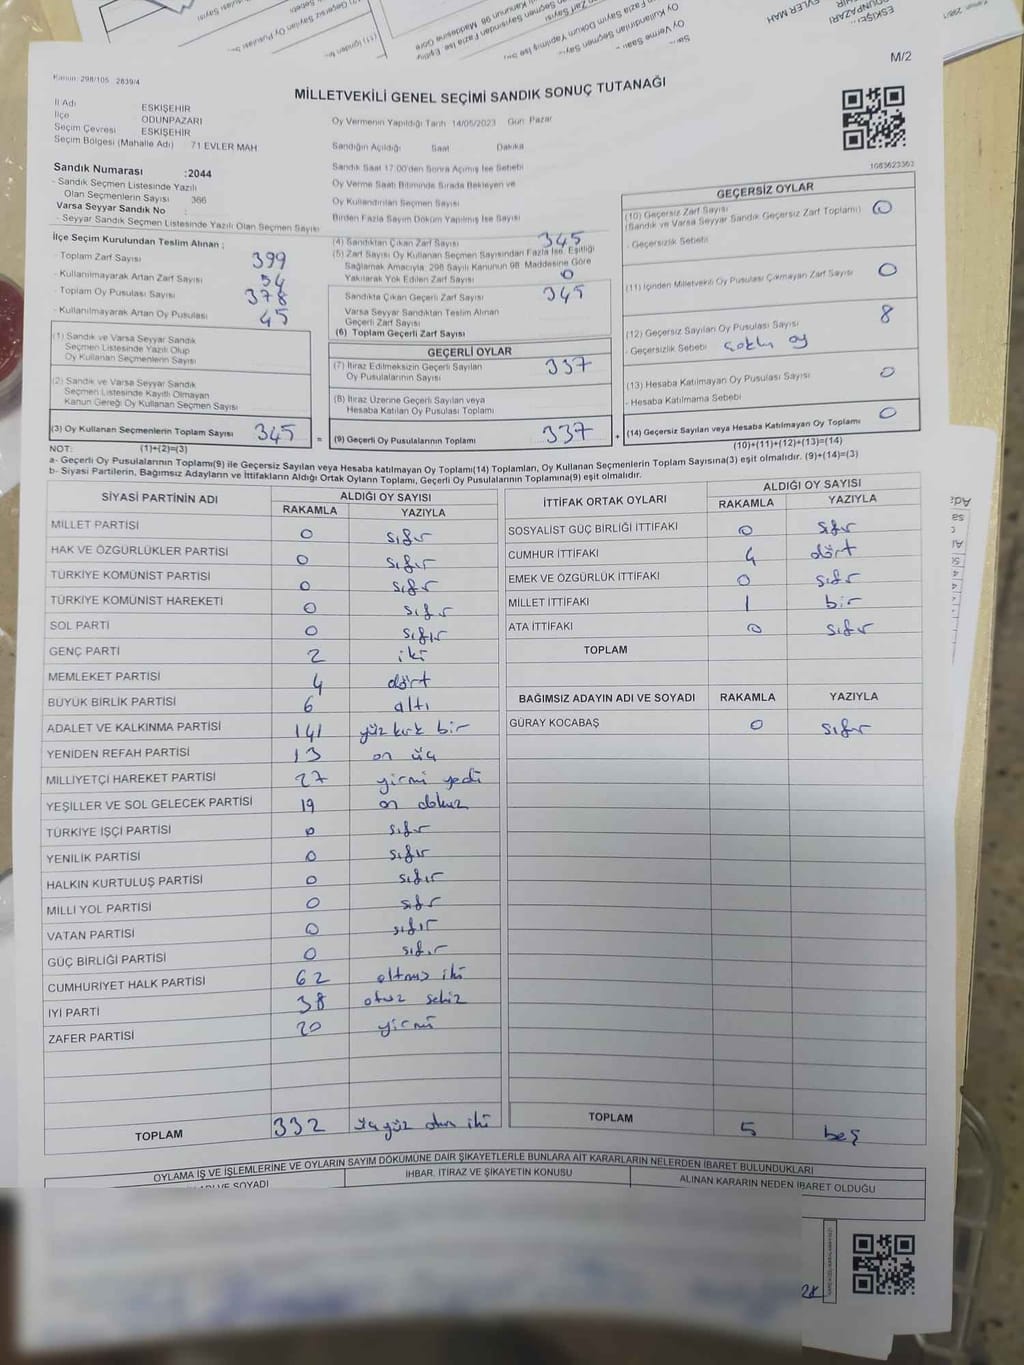 M/2
Kanun: 298/105 2839/4
MİLLETVEKİLİ GENEL SEÇİMİ SANDIK SONUÇ TUTANAĞI
İl Adı ESKİŞEHİR
İlçe ODUNPAZARI
Seçim Çevresi ESKİŞEHİR
Seçim Bölgesi (Mahalle Adı) 71 EVLER MAH
Oy Vermenin Yapıldığı Tarih 14/05/2023 Gün: Pazar
Sandığın Açıldığı Saat Dakika
Sandık Saat 17:00'den Sonra Açımış İse Sebebi
Oy Verme Saati Bitiminde Sırada Bekleyen ve
Oy Kullandırılan Seçmen Sayısı
Birden Fazla Sayım Döküm Yapılmış İse Sayısı
1083623362
Sandık Numarası :2044
- Sandık Seçmen Listesinde Yazılı
Olan Seçmenlerin Sayısı 366
Varsa Seyyar Sandık No :
- Seyyar Sandık Seçmen Listesinde Yazılı Olan Seçmen Sayısı
İlçe Seçim Kurulundan Teslim Alınan :
- Toplam Zarf Sayısı 399
- Kullanılmayarak Artan Zarf Sayısı 54
- Toplam Oy Pusulası Sayısı 378
- Kullanılmayarak Artan Oy Pusulası 45
(1) Sandık ve Varsa Seyyar Sandık
Seçmen Listesinde Yazılı Olup
Oy Kullanan Seçmenlerin Sayısı
(2) Sandık ve Varsa Seyyar Sandık
Seçmen Listesinde Kayıtlı Olmayan
Kanun Gereği Oy Kullanan Seçmen Sayısı
(3) Oy Kullanan Seçmenlerin Toplam Sayısı 345 =
(1)+(2)=(3)
(4) Sandıktan Çıkan Zarf Sayısı 345
(5) Zarf Sayısı Oy Kullanan Seçmen Sayısından Fazla İse, Eşitliği
Sağlamak Amacıyla 298 Sayılı Kanunun 98. Maddesine Göre
Yakılarak Yok Edilen Zarf Sayısı 0
Sandıkta Çıkan Geçerli Zarf Sayısı 345
Varsa Seyyar Sandıktan Teslim Alınan
Geçerli Zarf Sayısı
(6) Toplam Geçerli Zarf Sayısı
GEÇERLİ OYLAR
(7) İtiraz Edilmeksizin Geçerli Sayılan
Oy Pusulalarının Sayısı 337
(8) İtiraz Üzerine Geçerli Sayılan veya
Hesaba Katılan Oy Pusulası Toplamı
(9) Geçerli Oy Pusulalarının Toplamı 337 +
GEÇERSİZ OYLAR
(10) Geçersiz Zarf Sayısı 0
(Sandık ve Varsa Seyyar Sandık Geçersiz Zarf Toplamı)
- Geçersizlik Sebebi
(11) İçinden Milletvekili Oy Pusulası Çıkmayan Zarf Sayısı 0
(12) Geçersiz Sayılan Oy Pusulası Sayısı 8
- Geçersizlik Sebebi çoklu oy
(13) Hesaba Katılmayan Oy Pusulası Sayısı 0
- Hesaba Katılmama Sebebi
(14) Geçersiz Sayılan veya Hesaba Katılmayan Oy Toplamı 0
(10)+(11)+(12)+(13)=(14)
NOT:
a- Geçerli Oy Pusulalarının Toplamı(9) ile Geçersiz Sayılan veya Hesaba katılmayan Oy Toplamı(14) Toplamları, Oy Kullanan Seçmenlerin Toplam Sayısına(3) eşit olmalıdır. (9)+(14)=(3)
b- Siyasi Partilerin, Bağımsız Adayların ve İttifakların Aldığı Ortak Oyların Toplamı, Geçerli Oy Pusulalarının Toplamına(9) eşit olmalıdır.
SİYASİ PARTİNİN ADI ALDIĞI OY SAYISI
RAKAMLA YAZIYLA
MİLLET PARTİSİ 0 sıfır
HAK VE ÖZGÜRLÜKLER PARTİSİ 0 sıfır
TÜRKİYE KOMÜNİST PARTİSİ 0 sıfır
TÜRKİYE KOMÜNİST HAREKETİ 0 sıfır
SOL PARTİ 0 sıfır
GENÇ PARTİ 2 iki
MEMLEKET PARTİSİ 4 dört
BÜYÜK BİRLİK PARTİSİ 6 altı
ADALET VE KALKINMA PARTİSİ 141 yüz kırk bir
YENİDEN REFAH PARTİSİ 13 on üç
MİLLİYETÇİ HAREKET PARTİSİ 27 yirmi yedi
YEŞİLLER VE SOL GELECEK PARTİSİ 19 on dokuz
TÜRKİYE İŞÇİ PARTİSİ 0 sıfır
YENİLİK PARTİSİ 0 sıfır
HALKIN KURTULUŞ PARTİSİ 0 sıfır
MİLLİ YOL PARTİSİ 0 sıfır
VATAN PARTİSİ 0 sıfır
GÜÇ BİRLİĞİ PARTİSİ 0 sıfır
CUMHURİYET HALK PARTİSİ 62 altmış iki
İYİ PARTİ 38 otuz sekiz
ZAFER PARTİSİ 20 yirmi
TOPLAM 332 üçyüz otuz iki
İTTİFAK ORTAK OYLARI ALDIĞI OY SAYISI
RAKAMLA YAZIYLA
SOSYALİST GÜÇ BİRLİĞİ İTTİFAKI 0 sıfır
CUMHUR İTTİFAKI 4 dört
EMEK VE ÖZGÜRLÜK İTTİFAKI 0 sıfır
MİLLET İTTİFAKI 1 bir
ATA İTTİFAKI 0 sıfır
TOPLAM
BAĞIMSIZ ADAYIN ADI VE SOYADI RAKAMLA YAZIYLA
GÜRAY KOCABAŞ 0 sıfır
TOPLAM 5 beş
OYLAMA İŞ VE İŞLEMLERİNE VE OYLARIN SAYIM DÖKÜMÜNE DAİR ŞİKAYETLERLE BUNLARA AİT KARARLARIN NELERDEN İBARET BULUNDUKLARI
VE SOYADI İHBAR, İTİRAZ VE ŞİKAYETİN KONUSU ALINAN KARARIN NEDEN İBARET OLDUĞU